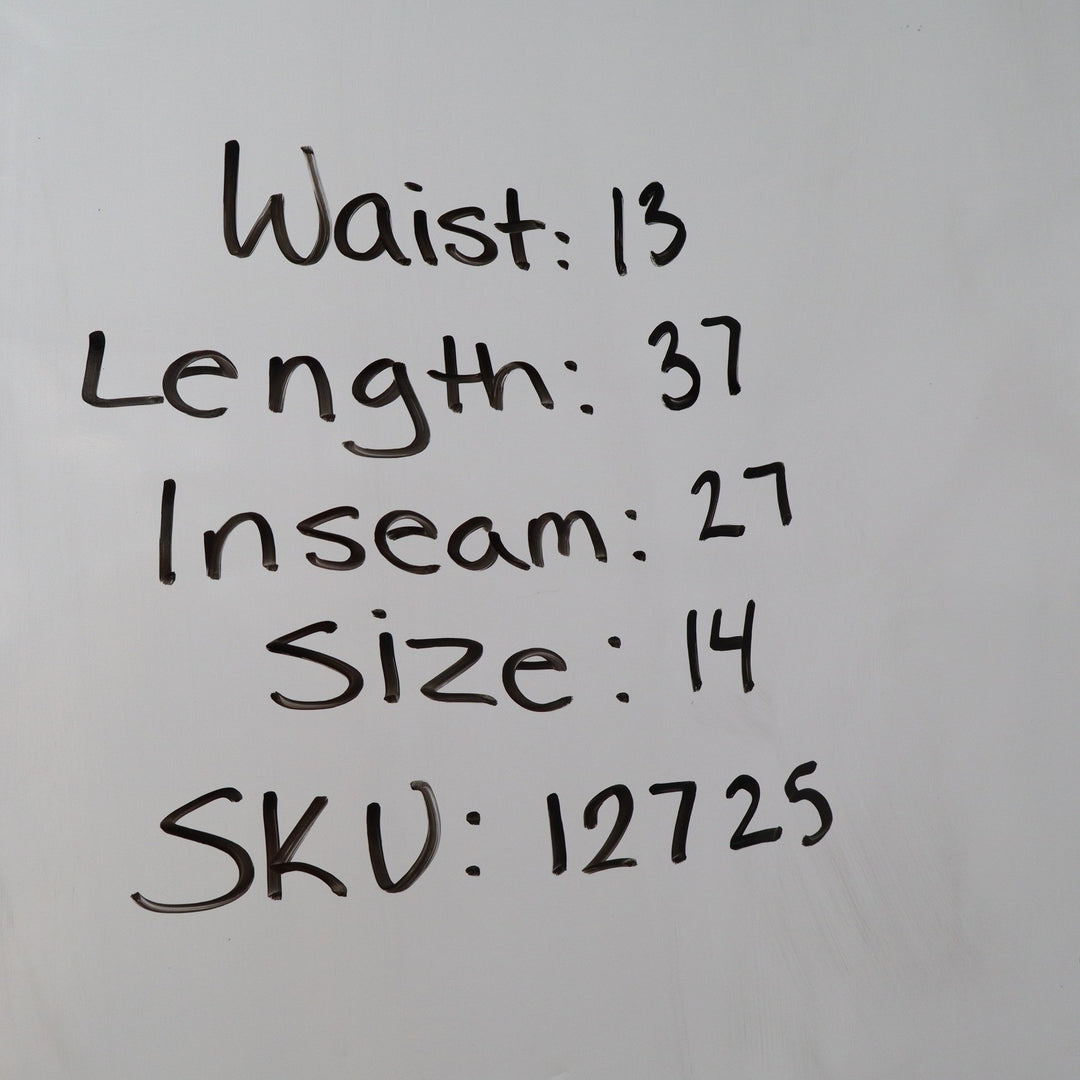 Waist: 13
Length: 37
Inseam: 27
Size: 14
SKU: 12725